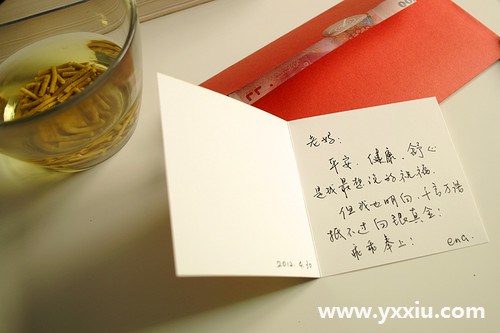 老妈:
平安、健康、舒心
是我最想说的祝福.
但我也明白,千言万语
抵不过白银真金!
乖乖奉上!
ena.
2012. 4.
www.yxxiu.com